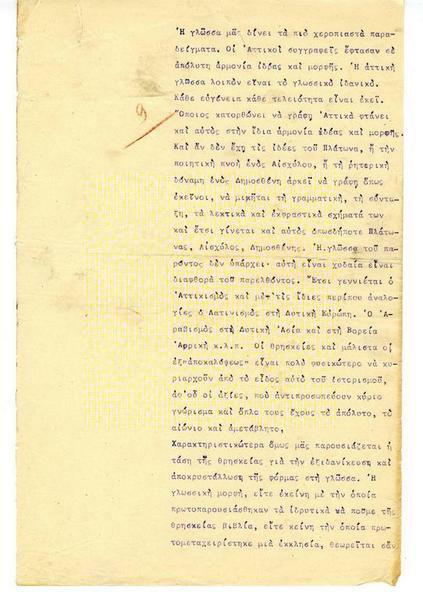 Ἡ γλῶσσα μᾶς δίνει τὰ πιὸ χεροπιαστὰ παρα-
δείγματα. Οἱ Ἀττικοὶ συγγραφεῖς ἔφτασαν σὲ
ἀπόλυτη ἁρμονία ἰδέας καὶ μορφῆς. Ἡ ἀττικὴ
γλῶσσα λοιπὸν εἶναι τὸ γλωσσικὸ ἰδανικό.
Κάθε εὐγένεια κάθε τελειότητα εἶναι ἐκεῖ.
Ὅποιος κατορθώνει νὰ γράφῃ Ἀττικὰ φτάνει
καὶ αὐτὸς στὴν ἴδια ἁρμονία ἰδέας καὶ μορφῆς.
Καὶ ἂν δὲν ἔχῃ τὶς ἰδέες τοῦ Πλάτωνα, ἢ τὴν
ποιητικὴ πνοὴ ἑνὸς Αἰσχύλου, ἢ τὴ ῥητερικὴ
δύναμη ἑνὸς Δημοσθένη ἀρκεῖ νὰ γράφῃ ὅπως
ἐκεῖνοι, νὰ μιμῆται τὴ γραμματική, τὴ σύντα-
ξη, τὰ λεκτικὰ καὶ ἐκφραστικὰ σχήματά των
καὶ ἔτσι γίνεται καὶ αὐτὸς ὁπωσδήποτε Πλάτω-
νας, Αἰσχύλος, Δημοσθένης. Ἡ γλῶσσα τοῦ πα-
ρόντος δὲν ὑπάρχει· αὐτὴ εἶναι χυδαία εἶναι
διαφθορὰ τοῦ παρελθόντος. Ἔτσι γεννιέται ὁ
Ἀττικισμὸς καὶ μὲ τὶς ἴδιες περίπου ἀναλο-
γίες ὁ Λατινισμὸς στὴ Δυτικὴ Εὐρώπη. Ὁ Ἀ-
ραβισμὸς στὴ Δυτικὴ Ἀσία καὶ στὴ Βορεία
Ἀφρικὴ κ.λ.π. Οἱ θρησκείες καὶ μάλιστα οἱ
ἐξ"ἀποκαλύψεως" εἶναι πολὺ φυσικώτερο νὰ κυ-
ριαρχοῦν ἀπὸ τὸ εἶδος αὐτὸ τοῦ ἱστορισμοῦ,
ἀφ'οῦ οἱ ἀξίες, ποὺ ἀντιπροσωπεύουν κύριο
γνώρισμα καὶ ὅπλο τους ἔχους τὸ ἀπόλυτο, τὸ
αἰώνιο καὶ ἀμετάβλητο,
Χαρακτηριστικώτερα ὅμως μᾶς παρουσιάζεται ἡ
τάση τῆς θρησκείας γιὰ τὴν ἐξιδανίκευση καὶ
ἀποκρυστάλλωση τῆς φόρμας στὴ γλῶσσα. Ἡ
γλωσσικὴ μορφή, εἴτε ἐκείνη μὲ τὴν ὁποία
πρωτοπαρουσιάσθηκαν τὰ ἱδρυτικὰ νὰ ποῦμε τῆς
θρησκείας βιβλία, εἴτε κείνη τὴν ὁποία πρω-
τομεταχειρίστηκε μιὰ ἐκκλησία, θεωρεῖται σὰν